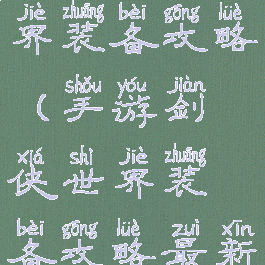 jiè zhuāng bèi gōng lüè
界 装 备 攻 略
shǒu yóu jiàn
( 手 游 剑
xiá shì jiè zhuāng
侠 世 界 装
bèi gōng lüè zuì xīn
备 攻 略 最 新